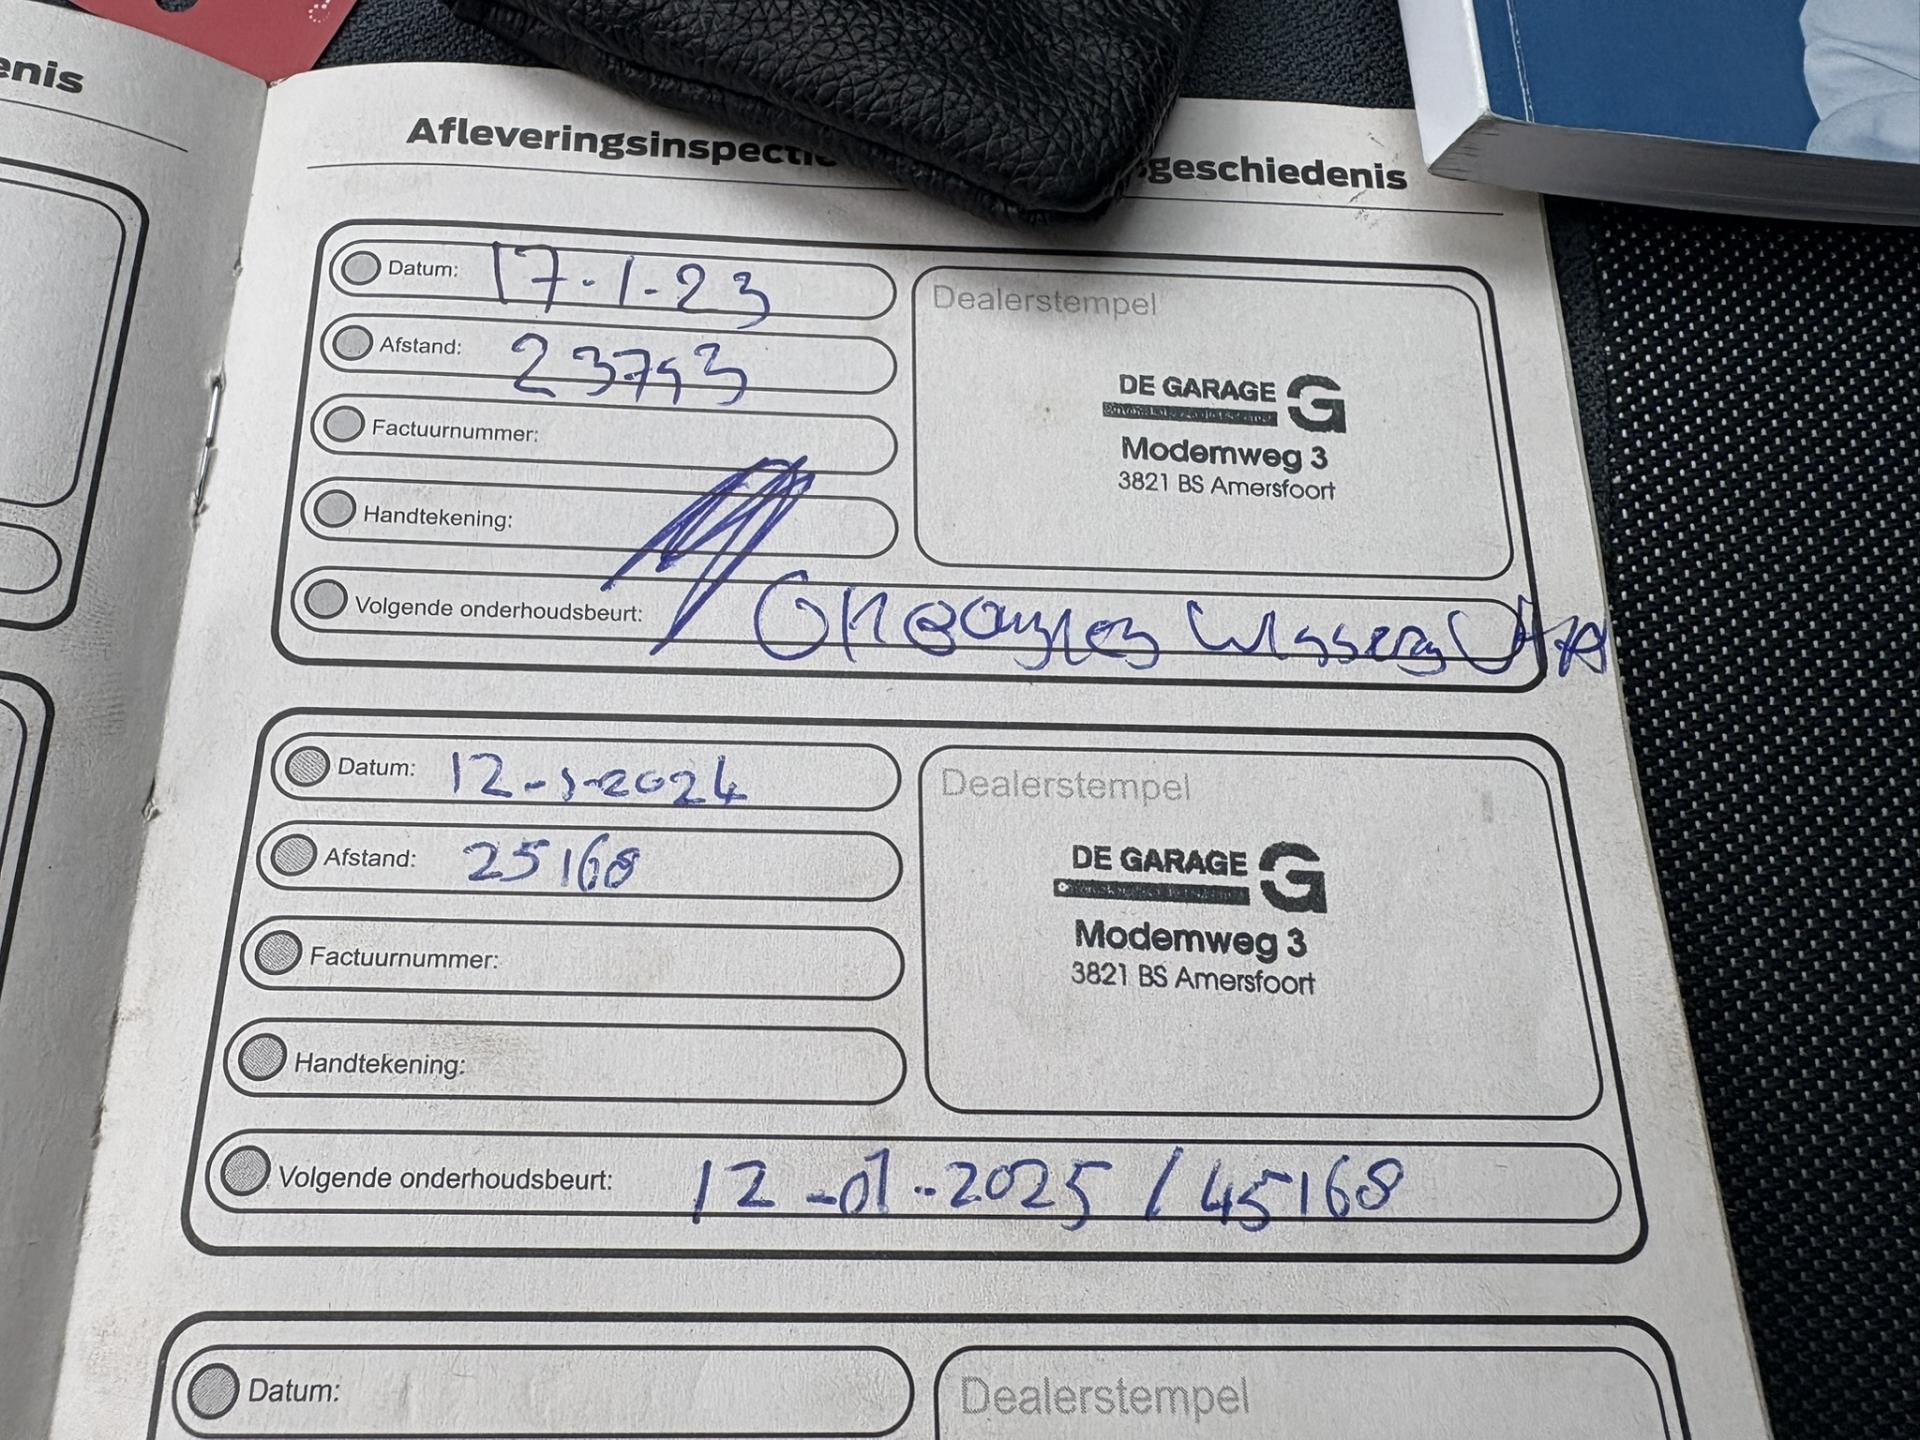 enis
Afleveringsinspectie geschiedenis
Datum: 17-1-23
Dealerstempel
Afstand: 23793
DE GARAGE G
Factuurnummer:
Modemweg 3
3821 BS Amersfoort
Handtekening:
Volgende onderhoudsbeurt:
Datum: 12-1-2024
Dealerstempel
Afstand: 25168
DE GARAGE G
Factuurnummer:
Modemweg 3
3821 BS Amersfoort
Handtekening:
Volgende onderhoudsbeurt: 12-01-2025 / 45168
Datum:
Dealerstempel